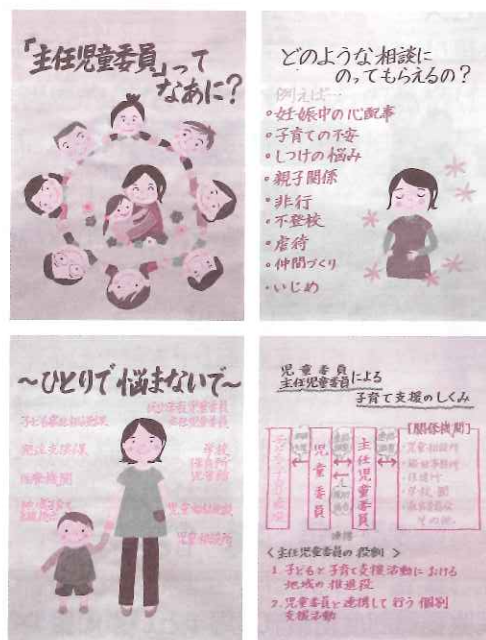 「主任児童委員」って
なあに?
どのような相談に
のってもらえるの?
例えば…
・妊娠中の心配事
・子育ての不安
・しつけの悩み
・親子関係
・非行
・不登校
・虐待
・仲間づくり
・いじめ
〜ひとりで悩まないで〜
主任児童委員
発達支援課
学校
保育所
児童館
医療機関
児童相談所
児童委員
主任児童委員による
子育て支援のしくみ
児童委員
主任児童委員
[関係機関]
・児童相談所
・保健所
・学校
その他
<主任児童委員の役割>
1. 子どもと子育て支援活動における
地域の推進役
2. 児童委員と連携して行う個別
支援活動